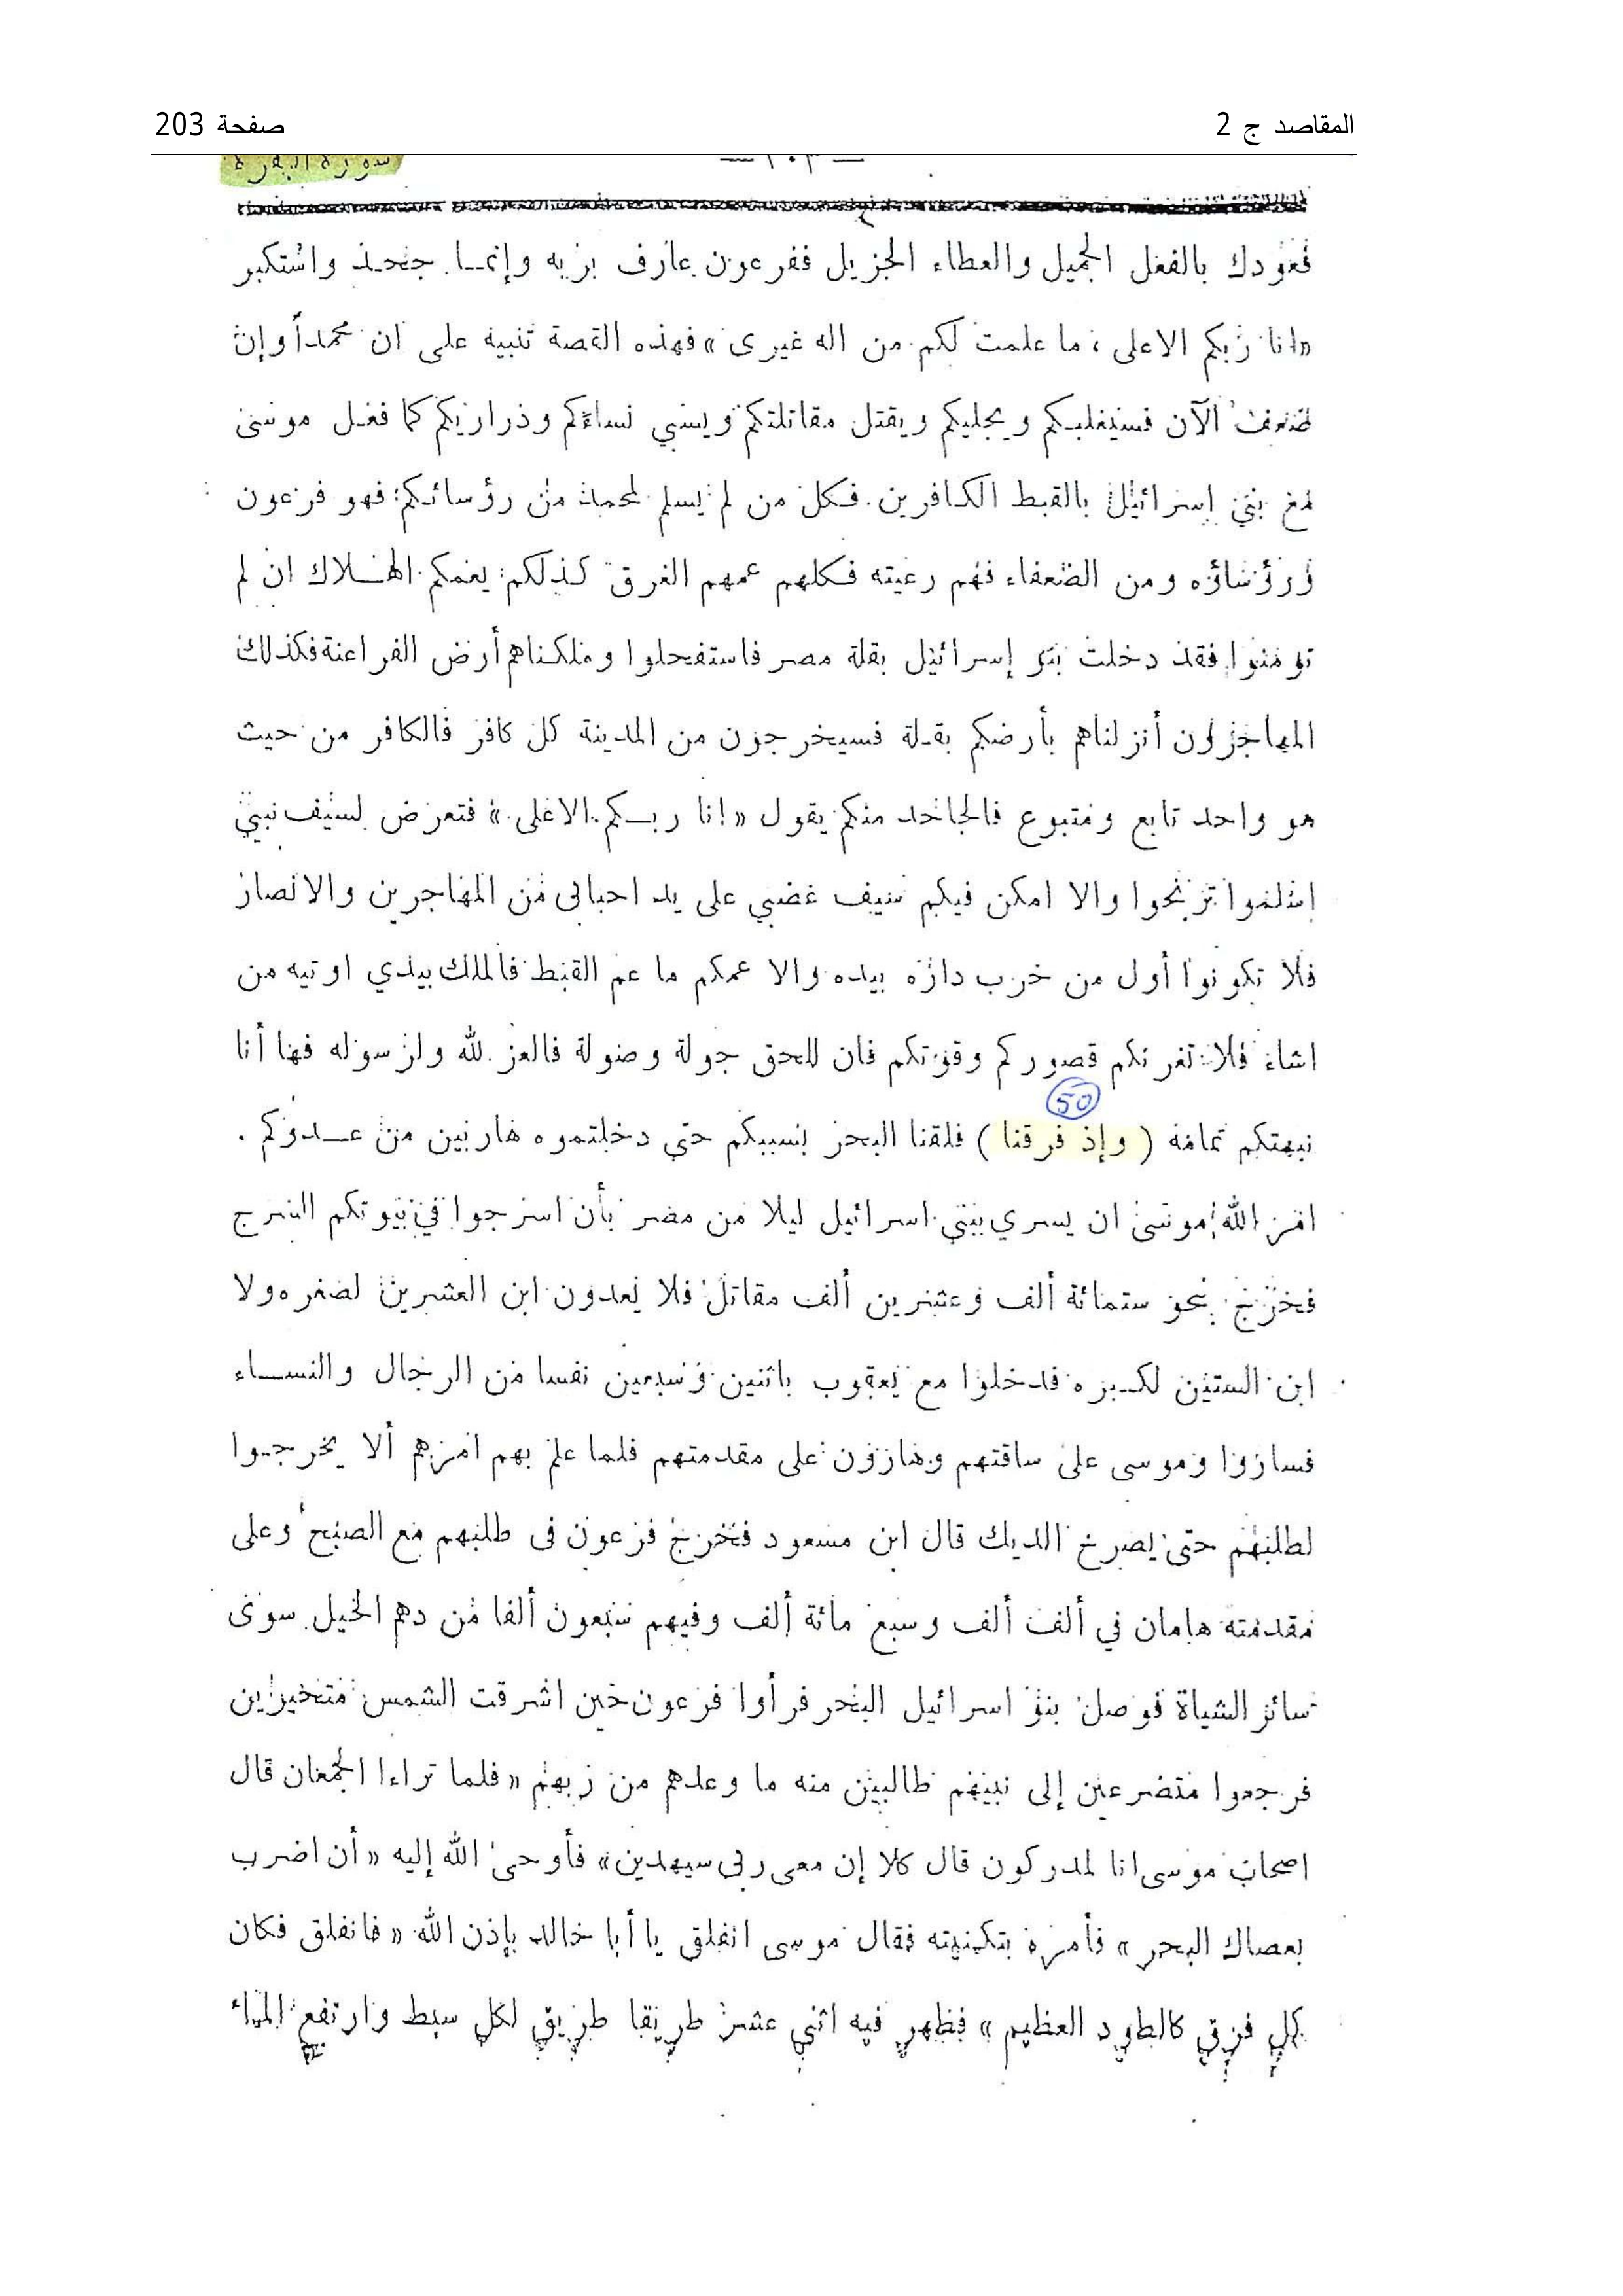 المقاصد ج 2
صفحة 203
— ٢٠٣ —
سورة البقرة
فعودك بالفعل الجميل والعطاء الجزيل ففرعون عارف بربه وإنما جحد واستكبر
«انا ربكم الاعلى، ما علمت لكم من اله غيرى» فهذه القصة تنبيه على ان محمداً وإن
ضعف الآن فسيغلبكم ويجليكم ويقتل مقاتلتكم ويسبي نساءكم وذراريكم كما فعل موسى
مع بني إسرائيل بالقبط الكافرين. فكل من لم يسلم لمحمد من رؤسائكم؛ فهو فرعون
ورؤساؤه ومن الضعفاء فهم رعيته فكلهم عمهم الغرق كذلكم يعمكم الهلاك ان لم
تؤمنوا فقد دخلت بنو إسرائيل بقلة مصر فاستفحلوا وملكناهم أرض الفراعنة فكذلك
المهاجرون أنزلناهم بأرضكم بقلة فسيخرجون من المدينة كل كافر فالكافر من حيث
هو واحد تابع ومتبوع فالجاحد منكم يقول «انا ربكم الاعلى» فتعرض لسيف نبيي
اسلموا تربحوا والا امكن فيكم سيف غضبي على يد احبابى من المهاجرين والانصار
فلا تكونوا أول من خرب داره بيده والا عمكم ما عم القبط فالملك بيدي اوتيه من
اشاء فلا تغرنكم قصوركم وقوتكم فان للحق جولة وصولة فالعز لله ولرسوله فها أنا
50
نبهتكم تمامه (وإذ فرقنا) فلقنا البحر بسببكم حتى دخلتموه هاربين من عدوكم.
امر الله موسى ان يسري ببني اسرائيل ليلا من مصر بأن اسرجوا في بيوتكم السرج
فخرج بنحو ستمائة ألف وعشرين ألف مقاتل فلا يعدون ابن العشرين لصغره ولا
ابن الستين لكبره فدخلوا مع يعقوب باثنين وسبعين نفسا من الرجال والنساء
فساروا وموسى على ساقتهم وهارون على مقدمتهم فلما علم بهم امرهم ألا يخرجوا
لطلبهم حتى يصرخ الديك قال ابن مسعود فخرج فرعون فى طلبهم مع الصبح وعلى
مقدمته هامان في ألف ألف وسبع مائة ألف وفيهم سبعون ألفا من دهم الخيل سوى
سائر الشياة فوصل بنو اسرائيل البحر فرأوا فرعون حين اشرقت الشمس متحيرين
فرجعوا متضرعين إلى نبيهم طالبين منه ما وعدهم من ربهم «فلما تراءا الجمعان قال
اصحاب موسى انا لمدركون قال كلا إن معى ربى سيهدين» فأوحى الله إليه «أن اضرب
بعصاك البحر» فأمره بتكنيته فقال موسى انفلق يا أبا خالد بإذن الله «فانفلق فكان
كل فرق كالطود العظيم» فظهر فيه اثني عشر طريقا طريق لكل سبط وارتفع الماء